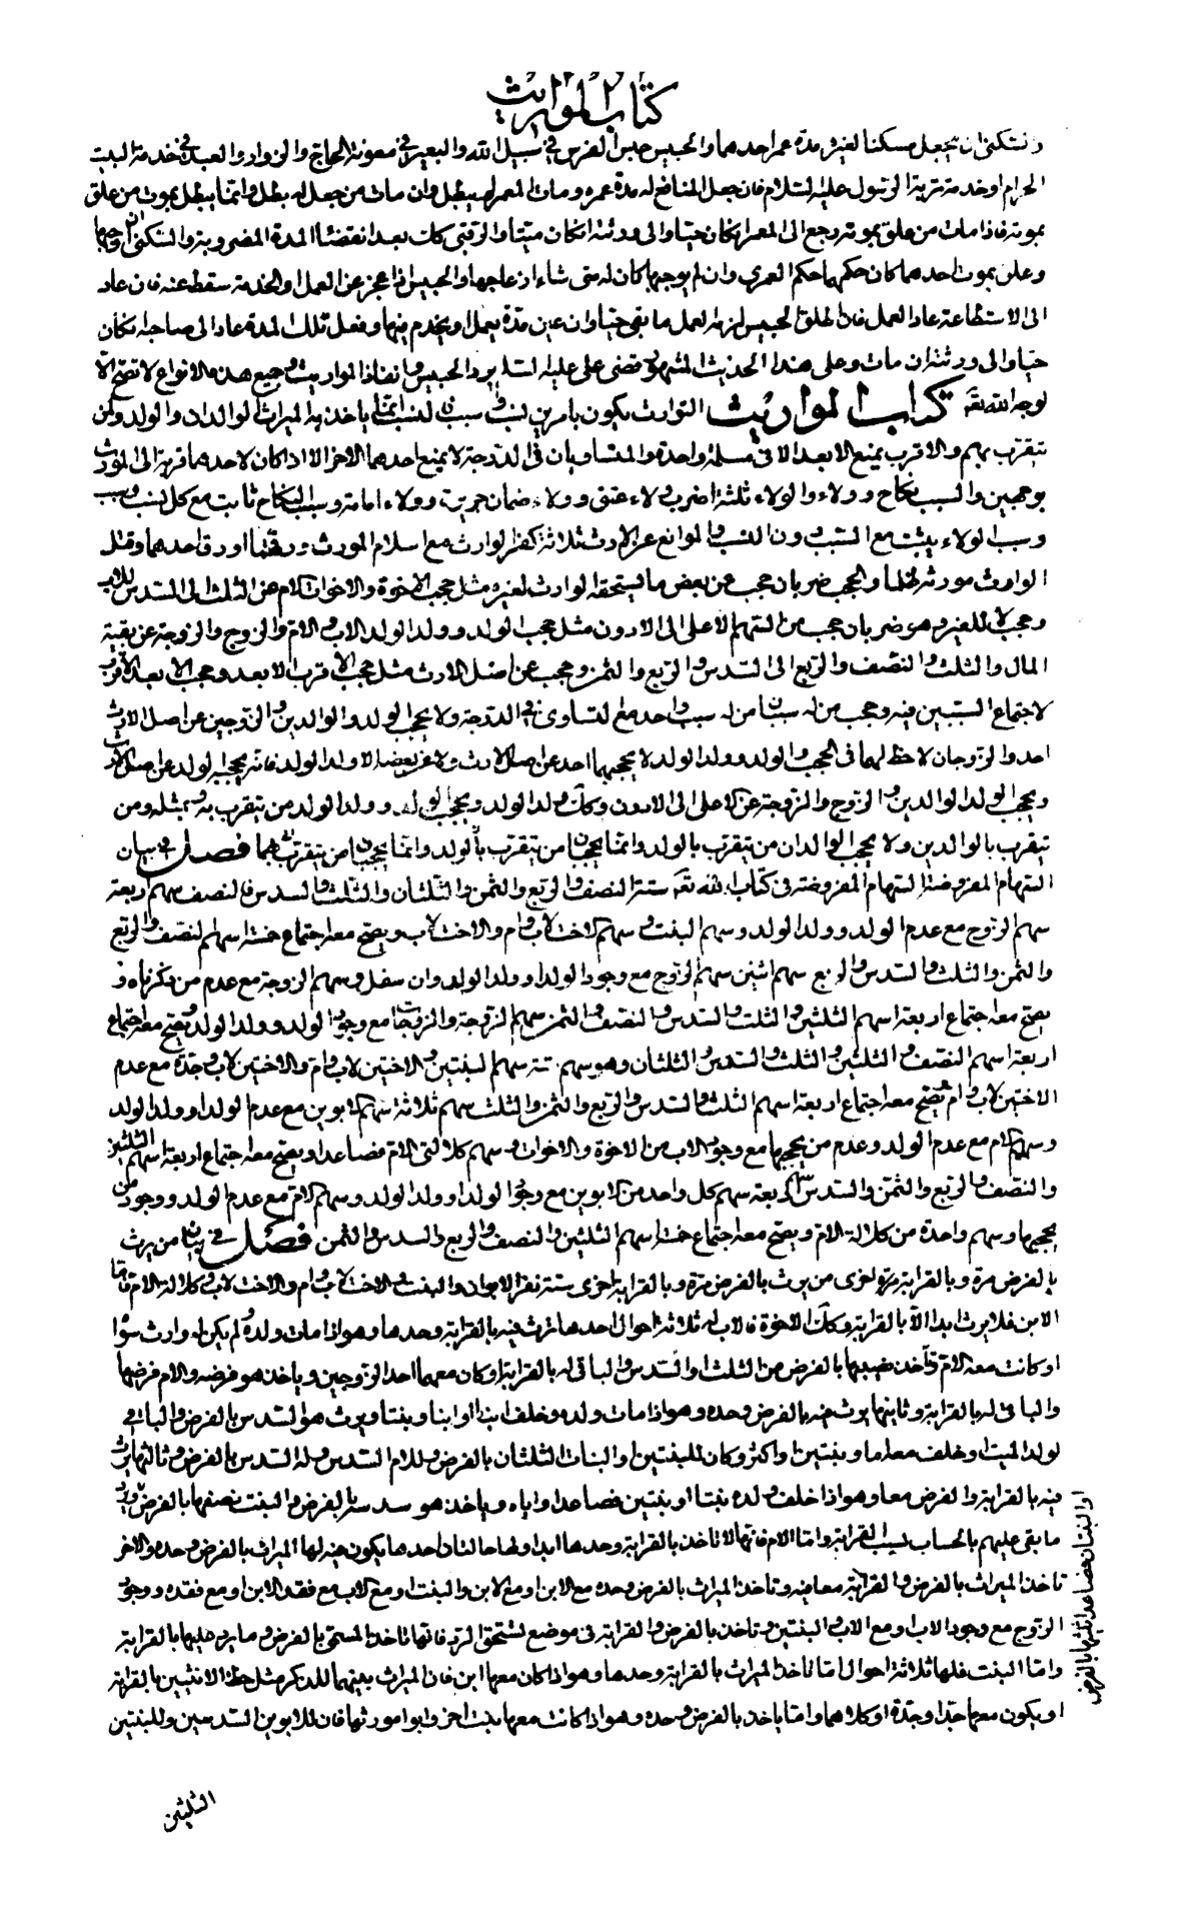 كتاب المواريث
والسكنى ان يجعل مسكنا لغيره مدة عمر احدهما والحبيس حبس الفرس في سبيل الله والبعير في معونة الحاج والزوار والعبد في خدمة البيت
الحرام او خدمة تربة الرسول عليه السلام فان جعل المنافع له مدة عمره ومات المعمر لم يبطل وان مات من جعل له بطل وانما يبطل بموت من علق
بموته فاذا مات من علق بموته رجع الى المعمر ان كان حيا والى ورثته ان كان ميتا والرقبى كانت بعد انقضاء المدة المضروبة والسكنى ان اوجبها
وعلق بموت احدهما كان حكمها حكم العمرى وان لم يوجبها كان له متى شاء ازعاجها والحبيس اذا عجز عن العمل والخدمة سقط عنه فان عاد
الى الاستطاعة عاد العمل فان اطلق الحبيس لزمه العمل ما بقي حيا وان عين مدة يعمل او يخدم فيها وفعل تلك المدة عاد الى صاحبه ان كان
حيا والى ورثته ان مات وعلى هذا الحديث المشهور قضى على عليه السلام برد الحبيس وانفاذ المواريث وجميع هذه الانواع لا تصح الا
لوجه الله تعه كتاب المواريث التوارث يكون بامرين نسب وسبب فالنسب انما ياخذ به الميراث الوالدان والولد ومن
يتقرب بهم والاقرب يمنع الابعد الا في مسئلة واحدة والمتساويان في الدرجة لا يمنع احدهما الاخر الا اذا كان لاحدهما قربة الى المورث
بوجهين والسبب نكاح وولاء والولاء ثلثة اضرب ولاء عتق وولاء ضمان جريرة وولاء امامة وسبب النكاح ثابت مع كل نسب وسبب
وسبب الولاء يثبت مع السبب دون النسب والموانع عن الارث ثلاثة كفر الوارث مع اسلام المورث ورقهما او رق احدهما وقتل
الوارث مورثه ظلما والحجب ضربان حجب عن بعض ما يستحقه الوارث لغيره مثل حجب الاخوة والاخوات الام عن الثلث الى السدس للاب
وحجب لا للغير وهو ضربان حجب من السهم الاعلى الى الادون مثل حجب الولد وولد الولد الاب والام والزوج والزوجة عن بقية
المال والثلث والنصف والربع الى السدس والربع والثمن وحجب عن اصل الارث مثل حجب الاقرب الابعد وحجب الابعد الاقرب
لاجتماع السببين فيه وحجب من له سببان من له سبب واحد مع التساوى في الدرجة ولا يحجب الولد والوالدين والزوجين عن اصل الارث
احد والزوجان لا حظ لهما في الحجب والولد وولد الولد لا يحجبهما احد عن اصل الارث ولا عن بعضه الا ولد الولد فانه يحجبه الولد عن اصل الارث
ويحجب الولد الوالدين والزوج والزوجة عن الاعلى الى الادون وكذلك ولد الولد ويحجب الولد وولد الولد من يتقرب به وبمثله ومن
يتقرب بالوالدين ولا يحجب الوالدان من يتقرب بالولد وانما يحجبان من يتقرب بهما فصل في بيان
السهام المفروضة السهام المفروضة في كتاب الله تعه ستة النصف والربع والثمن والثلثان والثلث والسدس فالنصف سهم اربعة
سهم الزوج مع عدم الولد وولد الولد وسهم البنت وسهم الاخت لاب وام والاخت لاب ويصح معه اجتماع خمسة اسهم النصف والربع
والثمن والثلث والسدس والربع سهم اثنين سهم الزوج مع وجود الولد او ولد الولد وان سفل وسهم الزوجة مع عدم من ذكرناه و
يصح معه اجتماع اربعة اسهم الثلثين والثلث والسدس والنصف والثمن سهم الزوجة والزوجات مع وجود الولد وولد الولد ويصح معه اجتماع
اربعة اسهم النصف والثلثين والثلث والسدس والثلثان وهو سهم ستة سهم البنتين والاختين لاب وام والاختين لاب وجدة مع عدم
الاختين لاب وام يصح معه اجتماع اربعة اسهم الثلث والسدس والربع والثمن والثلث سهم ثلاثة سهم الابوين مع عدم الولد او ولد الولد
وسهم الام مع عدم الولد وعدم من يحجبها مع وجود الاب من الاخوة والاخوات وسهم كلالتى الام فصاعدا ويصح معه اجتماع اربعة اسهم الثلثين
والنصف والربع والثمن والسدس اربعة سهم كل واحد من الابوين مع وجود الولد او ولد الولد وسهم الام مع عدم الولد ووجود من
يحجبها وسهم واحدة من كلالة الام ويصح معه اجتماع خمسة اسهم الثلثين والنصف والربع والسدس والثمن فصل في بيان من يرث
بالفرض مرة وبالقرابة مرة اخرى من يرث بالفرض مرة وبالقرابة اخرى ستة نفر الابوان والبنت والاخت لاب وام والاخت لاب وكلالة الام فاما
الابن فلا يرث ابدا الا بالقرابة وكذلك الاخوة فالاب له ثلاثة احوال احدها يرث فيه بالقرابة وحدها وهو اذا مات ولده ولم يكن له وارث سواه
او كانت معه الام تاخذ نصيبها بالفرض من الثلث او السدس والباقي له بالقرابة او كان معهما احد الزوجين وياخذ هو فرضه والام فرضها
والباقي له بالقرابة وثانيها يرث فيه بالفرض وحده وهو اذا مات ولده وخلف ابنا او ابنا وبنتا ويرث هو السدس بالفرض والباقي
لولد الميت او خلف معه اما وبنتين او اكثر وكان للبنتين او البنات الثلثان بالفرض وللام السدس وله السدس بالفرض وثالثها يرث
فيه بالقرابة والفرض معا وهو اذا خلف ولده بنتا او بنتين فصاعدا واياه وياخذ هو سدسه بالفرض والبنت نصفها بالفرض ويرد
ما بقى عليهم بالحساب لسبب القرابة واما الام فانها لا تاخذ بالقرابة وحدها ابدا ولها حالتان احدهما يكون فيه لها الميراث بالفرض وحده والاخر
تاخذ الميراث بالفرض والقرابة معا فيه وتاخذ الميراث بالفرض وحده مع الابن او مع الابن والبنت او مع الاب مع فقد الابن او مع فقده ووجود
الزوج مع وجود الاب او مع الاب والبنتين وتاخذ بالفرض والقرابة في موضع تستحق الرد فانها تاخذ المسمى بالفرض وما يرد عليها بالقرابة
واما البنت فلها ثلاثة احوال اما تاخذ الميراث بالقرابة وحدها وهو اذا كان معها ابن فان الميراث بينهما للذكر مثل حظ الانثيين بالقرابة
او يكون معها جد او جدة او كلاهما واما ياخذ بالفرض وحده وهو اذا كانت معها بنت اخرى وابوا مورثها فان للابوين السدسين وللبنتين
او البنتان فصاعدا ثلثيها بالفرض
الثلثين